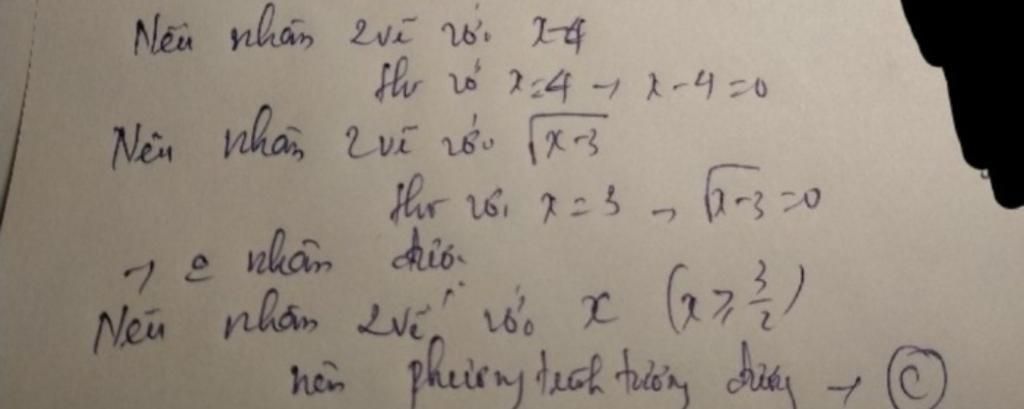 Nếu nhân 2 vế với x-4
thì với x=4 → x-4=0
Nếu nhân 2 vế với √(x-3)
thì với x=3 → √(x-3)=0
→ nhân được
Nếu nhân 2 vế với x (x ≥ 3/2)
nên phương trình tương đương → Ⓒ